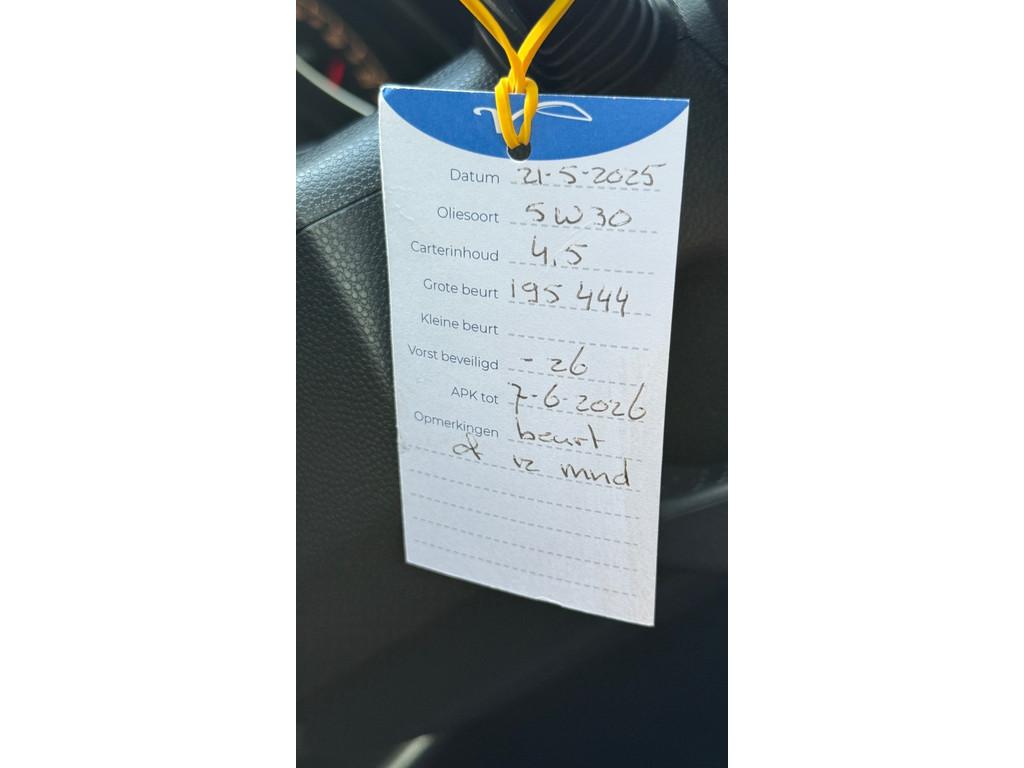 Datum 21-5-2025
Oliesoort 5W30
Carterinhoud 4,5
Grote beurt 195 444
Kleine beurt
Vorst beveiligd - 26
APK tot 7-6-2026
Opmerkingen beurt
of 12 mnd